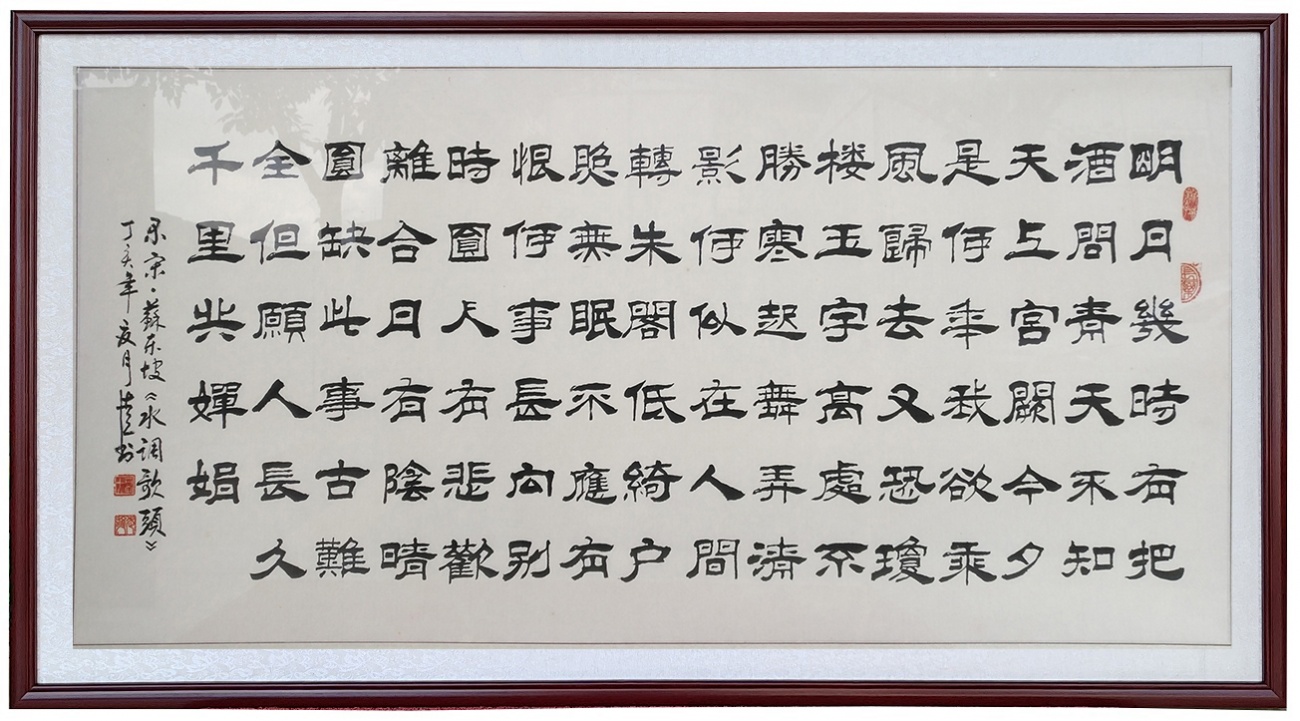 明月幾時有把
酒問青天不知
天上宮闕今夕
是何年我欲乘
風歸去又恐瓊
楼玉宇高處不
勝寒起舞弄清
影何似在人間
轉朱閣低綺户
照無眠不應有
恨何事長向别
時圓人有悲歡
離合月有陰晴
圓缺此事古難
全但願人長久
千里共嬋娟
录宋·蘇东坡《水調歌頭》
丁亥年夏月书